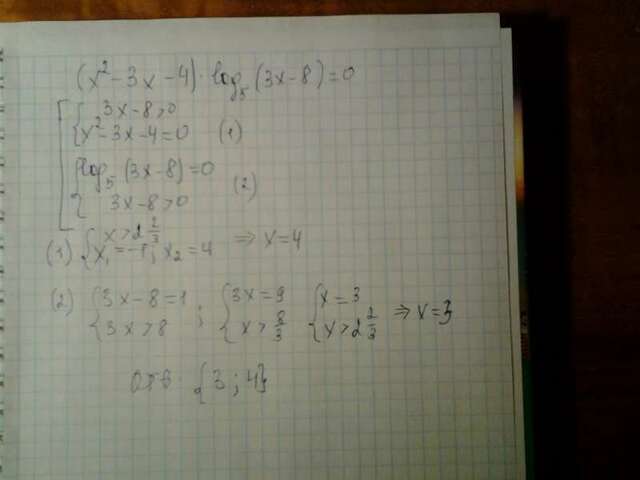 (x² - 3x - 4) · log₅ (3x - 8) = 0
[ { 3x - 8 > 0
x² - 3x - 4 = 0 (1)
{ log₅ (3x - 8) = 0
3x - 8 > 0 (2)
(1) { x > 2 2/3
x₁ = -1; x₂ = 4 ⇒ x = 4
(2) { 3x - 8 = 1 ; { 3x = 9 { x = 3
3x > 8 x > 8/3 x > 2 2/3 ⇒ x = 3
Отв: {3; 4}